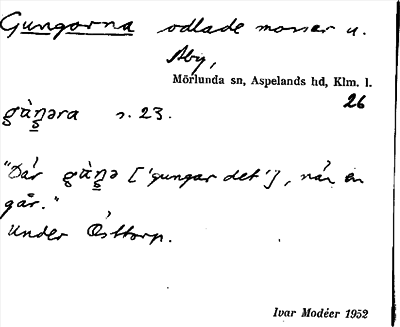 Gungorna odlade mossar u.
Åby,
Mörlunda sn, Aspelands hd, Klm. l.
26
gùŋəra s. 23.
"Där gùŋə ['gungar det'], när en
går."
Under Östtorp.
Ivar Modéer 1952